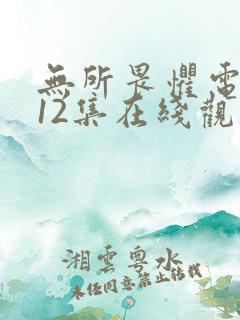 無所畏懼電
12集在綫觀
湘雲粵水
未經同意禁止轉載